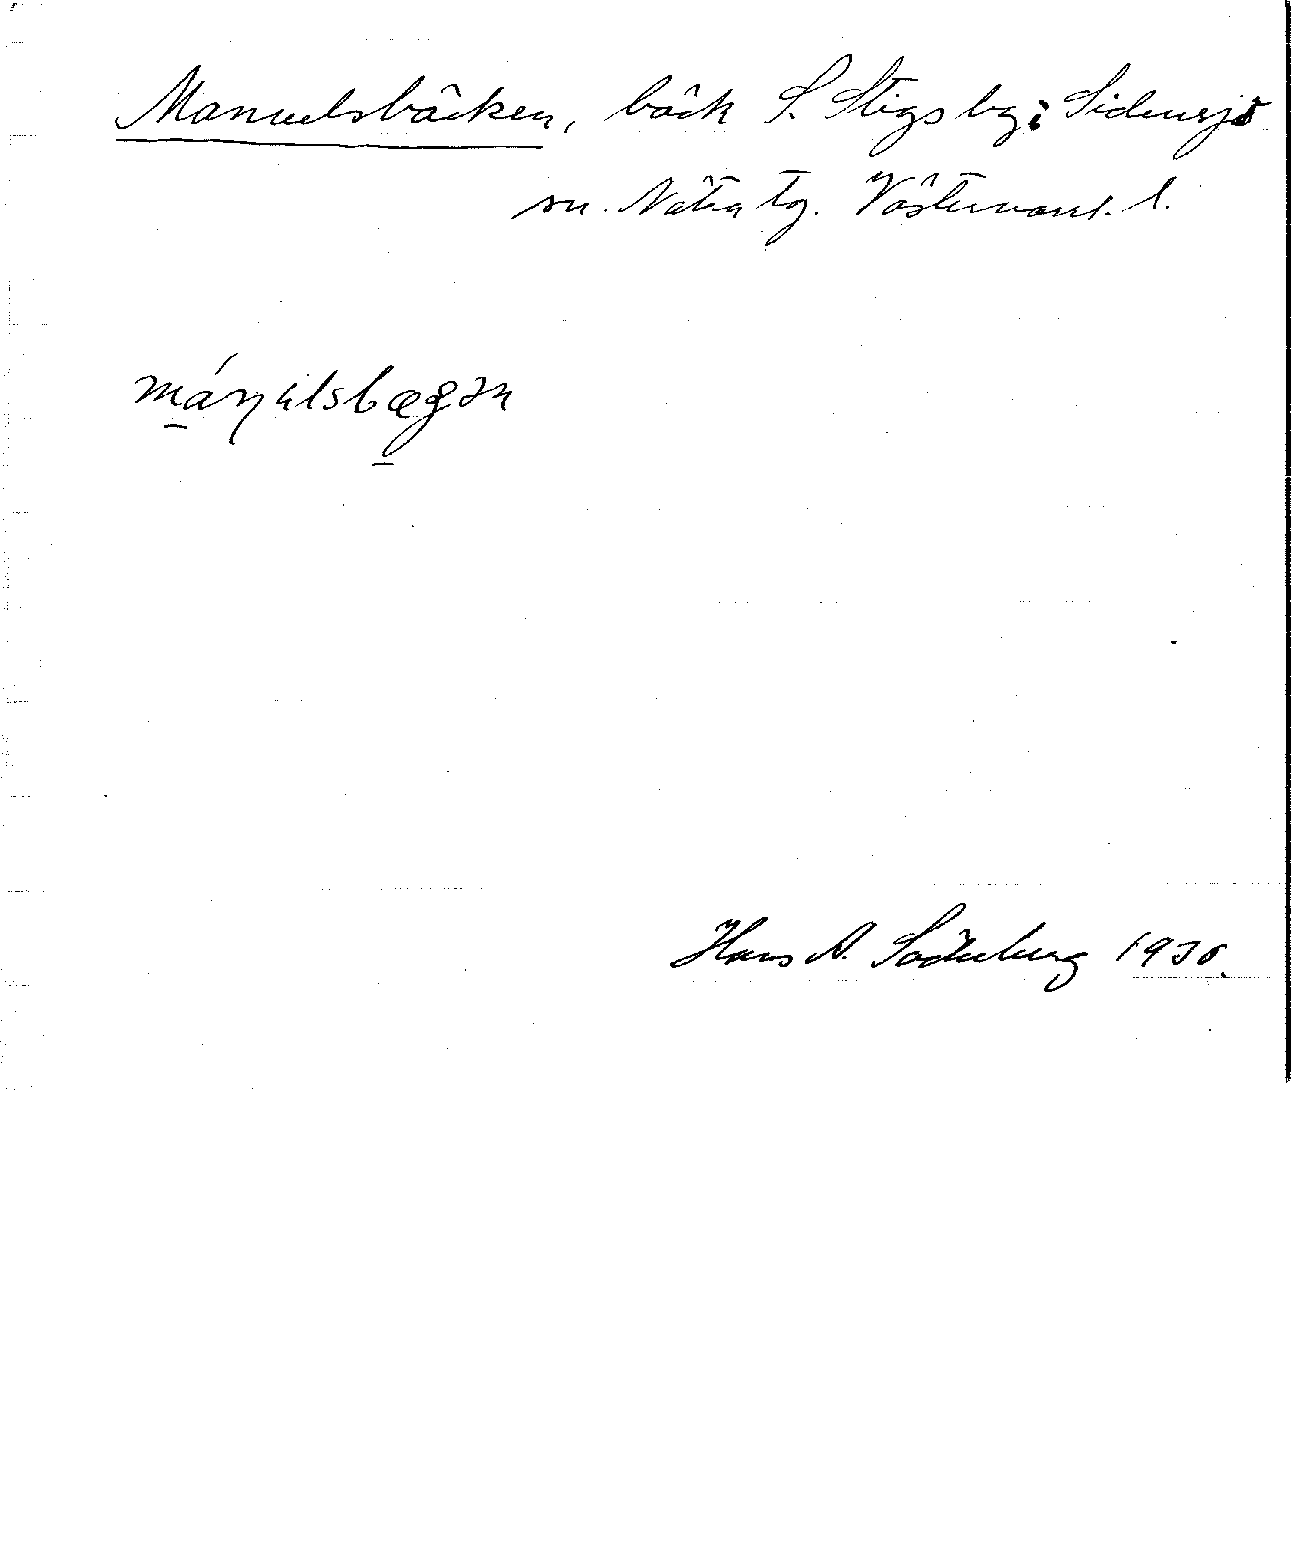 Manuelsbäcken, bäck S. Stigs by i Sidensjö
sn. Nätra tg. Västernorrl. l.
Hans A. Söderberg 1930.